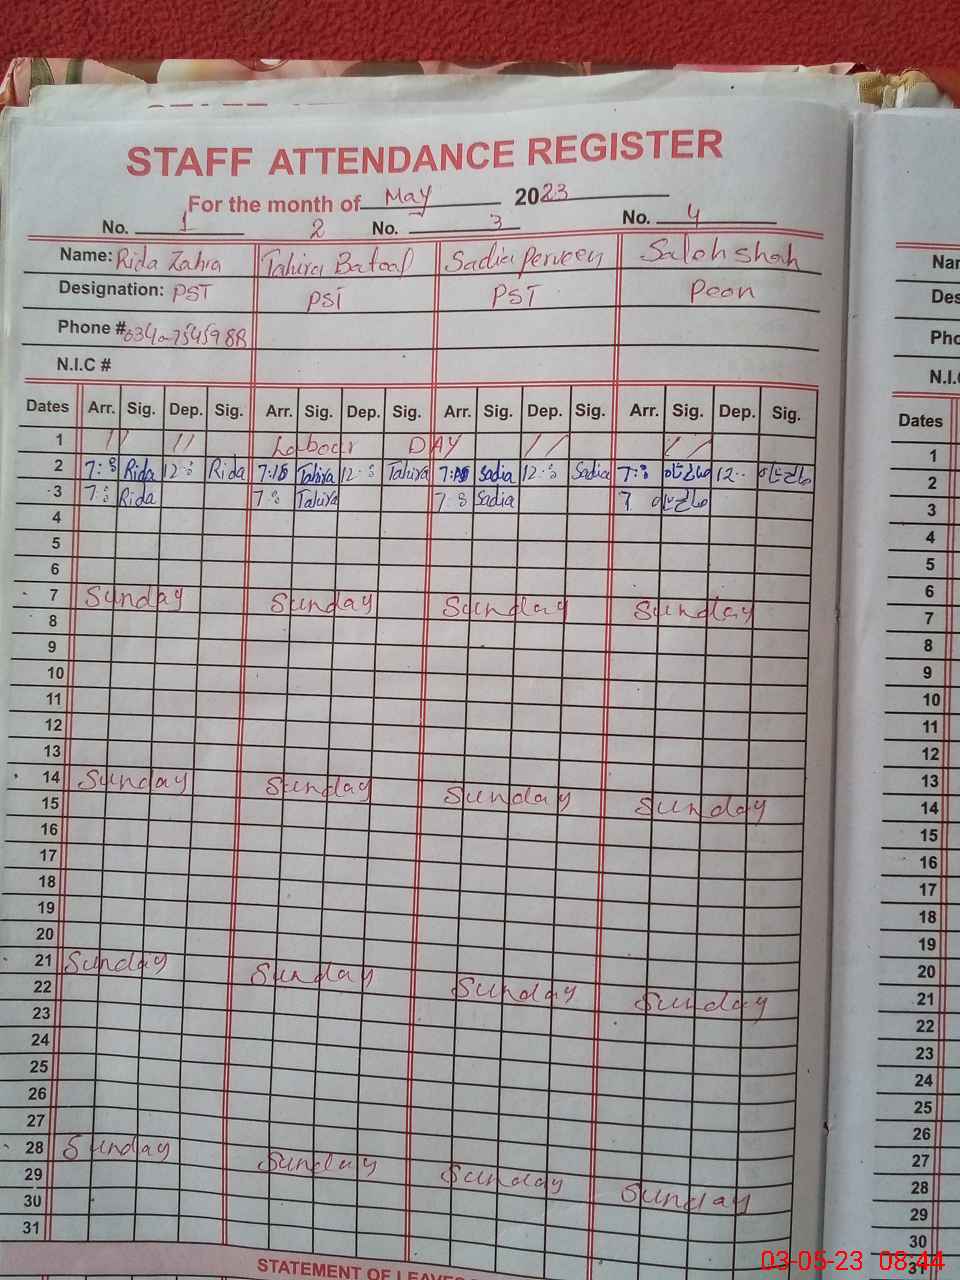 STAFF ATTENDANCE REGISTER
For the month of May 2023
No. 1 2 No. 3 No. 4
Name: Rida Zahra Tahira Batool Sadia Perveen Saleh shah
Designation: PST PST PST Peon
Phone #
N.I.C #
Dates Arr. Sig. Dep. Sig. Arr. Sig. Dep. Sig. Arr. Sig. Dep. Sig. Arr. Sig. Dep. Sig.
1 // // Labour DAY // //
2 Rida Rida Tahira Tahira Sadia Sadia
3 Rida Tahira Sadia
4
5
6
7 Sunday Sunday Sunday Sunday
8
9
10
11
12
13
14 Sunday Sunday Sunday Sunday
15
16
17
18
19
20
21 Sunday Sunday Sunday Sunday
22
23
24
25
26
27
28 Sunday Sunday Sunday Sunday
29
30
31
STATEMENT OF
Dates
1
2
3
4
5
6
7
8
9
10
11
12
13
14
15
16
17
18
19
20
21
22
23
24
25
26
27
28
29
30
31
03-05-23 08:44